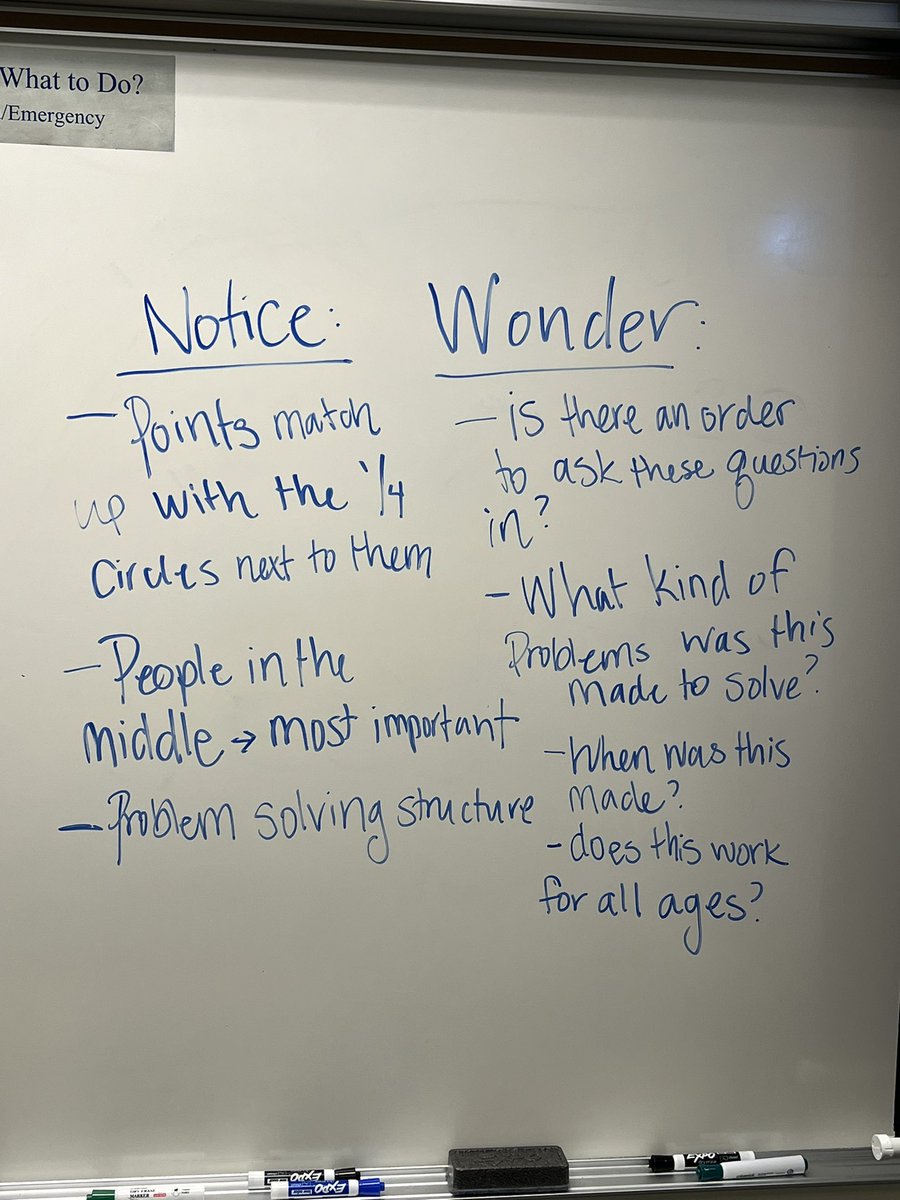 What to Do?
/Emergency
Notice:
- Points match
up with the 1/4
circles next to them
- People in the
middle → most important
- Problem solving structure
Wonder:
- is there an order
to ask these questions
in?
- What kind of
Problems was this
made to solve?
- When was this
made?
- does this work
for all ages?
EXPO
EXPO
EXPO
MARKER